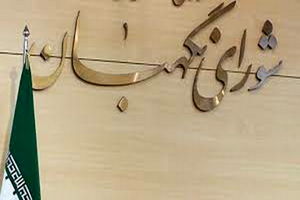 شورای نگهبان